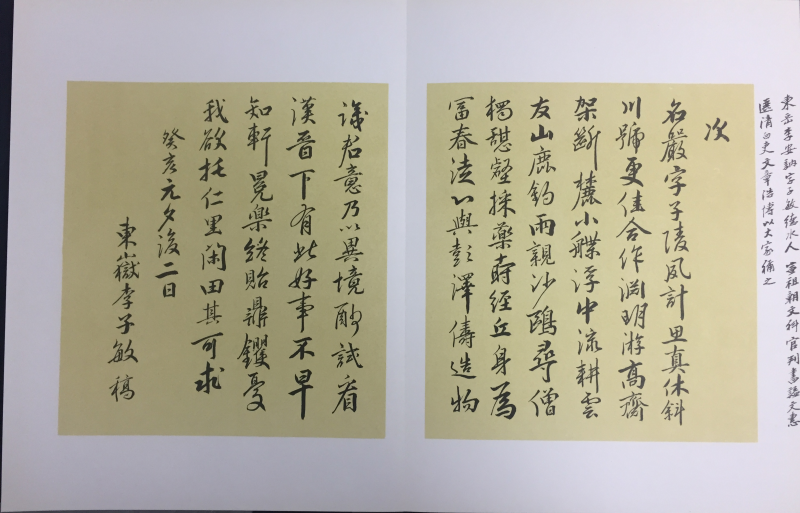 東岳李安訥字子敏德水人 宣祖朝文科官判書諡文惠
選清白吏文章浩博以大家稱之
次
名嚴字子陵夙計思真休斜
川號更佳合作淵明游高齋
架斷麓小艓浮中流耕雲
友山鹿釣雨親沙鷗尋僧
憩壑採藥時經丘身為
富春徒心與彭澤儔造物
識君意乃以異境酬試看
漢晉下有此好事不早
知軒冕樂終貽鼎鑊憂
我欲托仁里閑田其可求
癸亥元夕後二日
東嶽李子敏稿